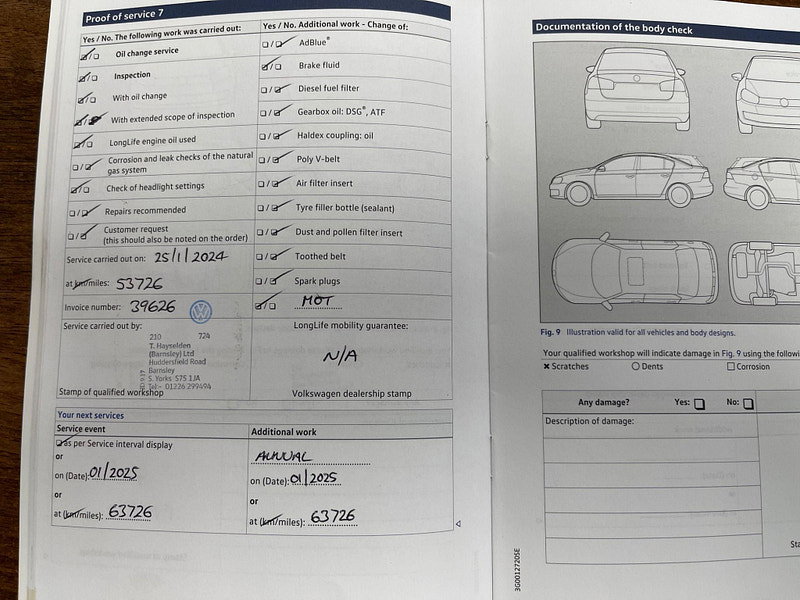 Proof of service 7
Yes / No. The following work was carried out:
Oil change service
Inspection
With oil change
With extended scope of inspection
LongLife engine oil used
Corrosion and leak checks of the natural
gas system
Check of headlight settings
Repairs recommended
Customer request
(this should also be noted on the order)
Service carried out on: 25/1/2024
at km/miles: 53726
Invoice number: 39626
Service carried out by:
210 724
T. Hayselden
(Barnsley) Ltd
Huddersfield Road
Barnsley
S. Yorks S75 1JA
Tel:- 01226 299494
Stamp of qualified workshop
Yes / No. Additional work - Change of:
AdBlue®
Brake fluid
Diesel fuel filter
Gearbox oil: DSG®, ATF
Haldex coupling: oil
Poly V-belt
Air filter insert
Tyre filler bottle (sealant)
Dust and pollen filter insert
Toothed belt
Spark plugs
MOT
LongLife mobility guarantee:
N/A
Volkswagen dealership stamp
Your next services
Service event
as per Service interval display
or
on (Date): 01/2025
or
at (km/miles): 63726
Additional work
ANNUAL
on (Date): 01/2025
or
at (km/miles): 63726
Documentation of the body check
Fig. 9 Illustration valid for all vehicles and body designs.
Your qualified workshop will indicate damage in Fig. 9 using the
Scratches Dents Corrosion
Any damage? Yes: No:
Description of damage:
3G0012720SE